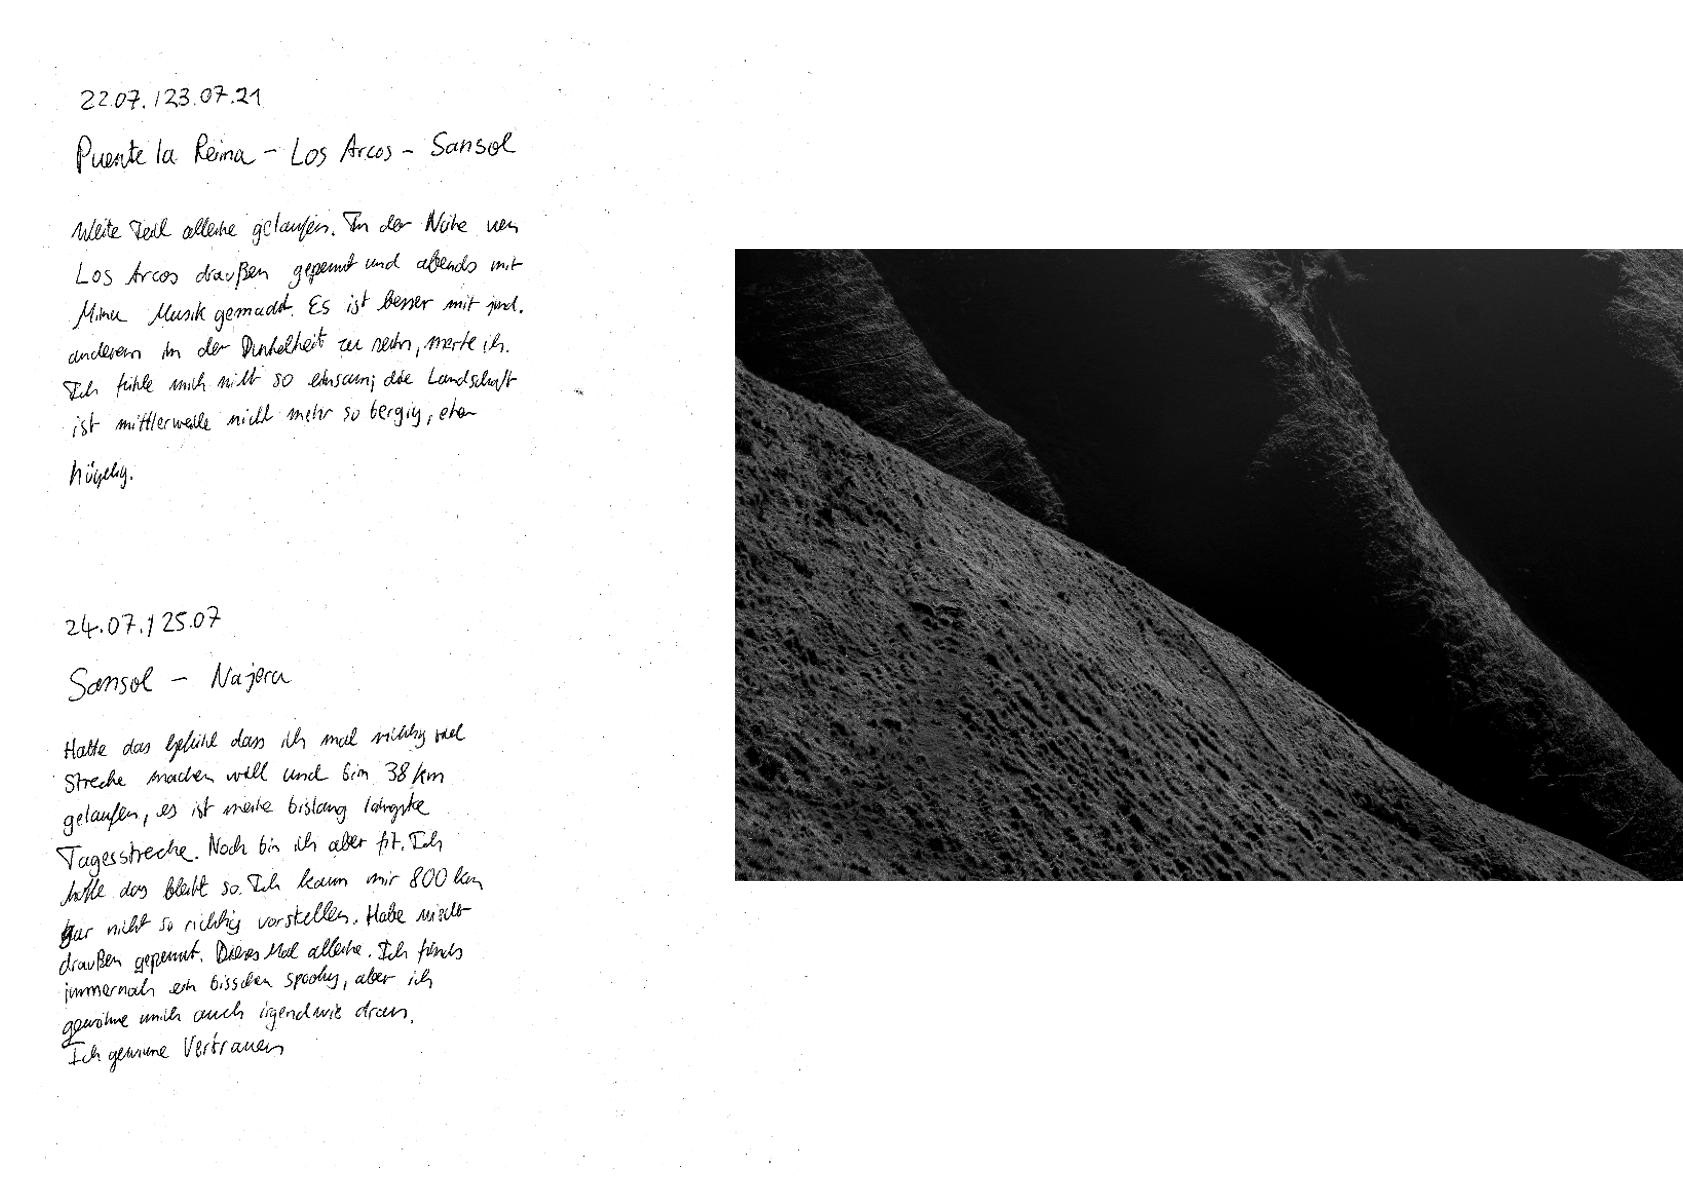 22.07. / 23.07.21
Puente la Reina – Los Arcos – Sansol
Weite Teil alleine gelaufen. In der Nähe von
Los Arcos draußen gepennt und abends mit
Musik gemacht. Es ist besser mit jmd.
anderem in der Dunkelheit zu sein, merke ich.
Ich fühle mich nicht so einsam; die Landschaft
ist mittlerweile nicht mehr so bergig, eher
hügelig.
24.07. / 25.07
Sansol – Najera
Hatte das Gefühl dass ich mal richtig viel
Strecke machen will und bin 38 km
gelaufen, es ist meine bislang längste
Tagesstrecke. Noch bin ich aber fit. Ich
hoffe das bleibt so. Ich kann mir 800 km
gar nicht so richtig vorstellen. Habe wieder
draußen gepennt. Dieses Mal alleine. Ich finds
immernoch ein bisschen spooky, aber ich
gewöhne mich auch irgendwie dran.
Ich gewinne Vertrauen